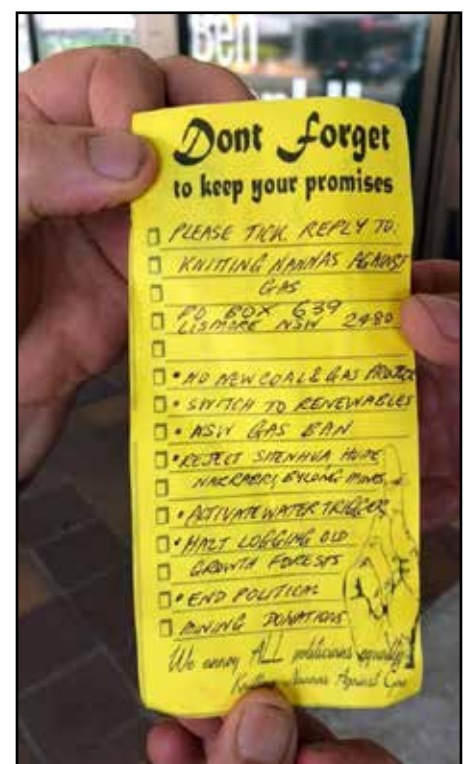 Ben
Dont Forget
to keep your promises
PLEASE TICK REPLY TO:
KNITTING NANNAS AGAINST
GAS
PO BOX 639
LISMORE NSW 2480
• NO NEW COAL & GAS PROJECTS
• SWITCH TO RENEWABLES
• NSW GAS BAN
• REJECT SHENHUA HUME
NARRABRI, BYLONG MINES,
• ACTIVATE WATER TRIGGER
• HALT LOGGING OLD
GROWTH FORESTS
• END POLITICAL
MINING DONATIONS
We annoy ALL politicians equally
Knitting Nannas Against Gas